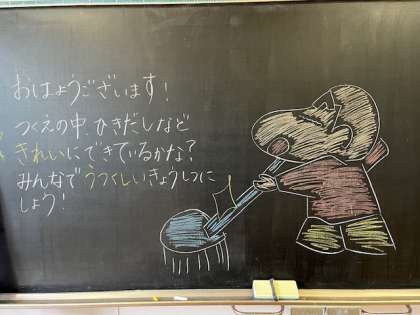 おはようございます!
つくえの中、ひきだしなど
きれいにできているかな?
みんなでうつくしいきょうしつに
しよう!